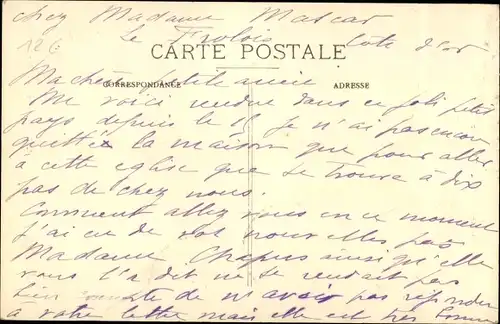 chez Madame Mascar
12 6
Le Frolois Cote d'or
CARTE POSTALE
CORRESPONDANCE
ADRESSE
Ma chère petite amie
Me voici rendue dans ce joli petit
pays depuis le 15 Je n'ai pas encore
quitté la maison que pour aller
à cette eglise que se trouve à dix
pas de chez nous.
Comment allez vous en ce moment
j'ai eu de vos nouvelles par
Madame Chapuis ainsi qu'elle
vous l'a dit ne se rendait pas
bien de n'avoir pas répondu
a votre lettre mais elle est très bonne